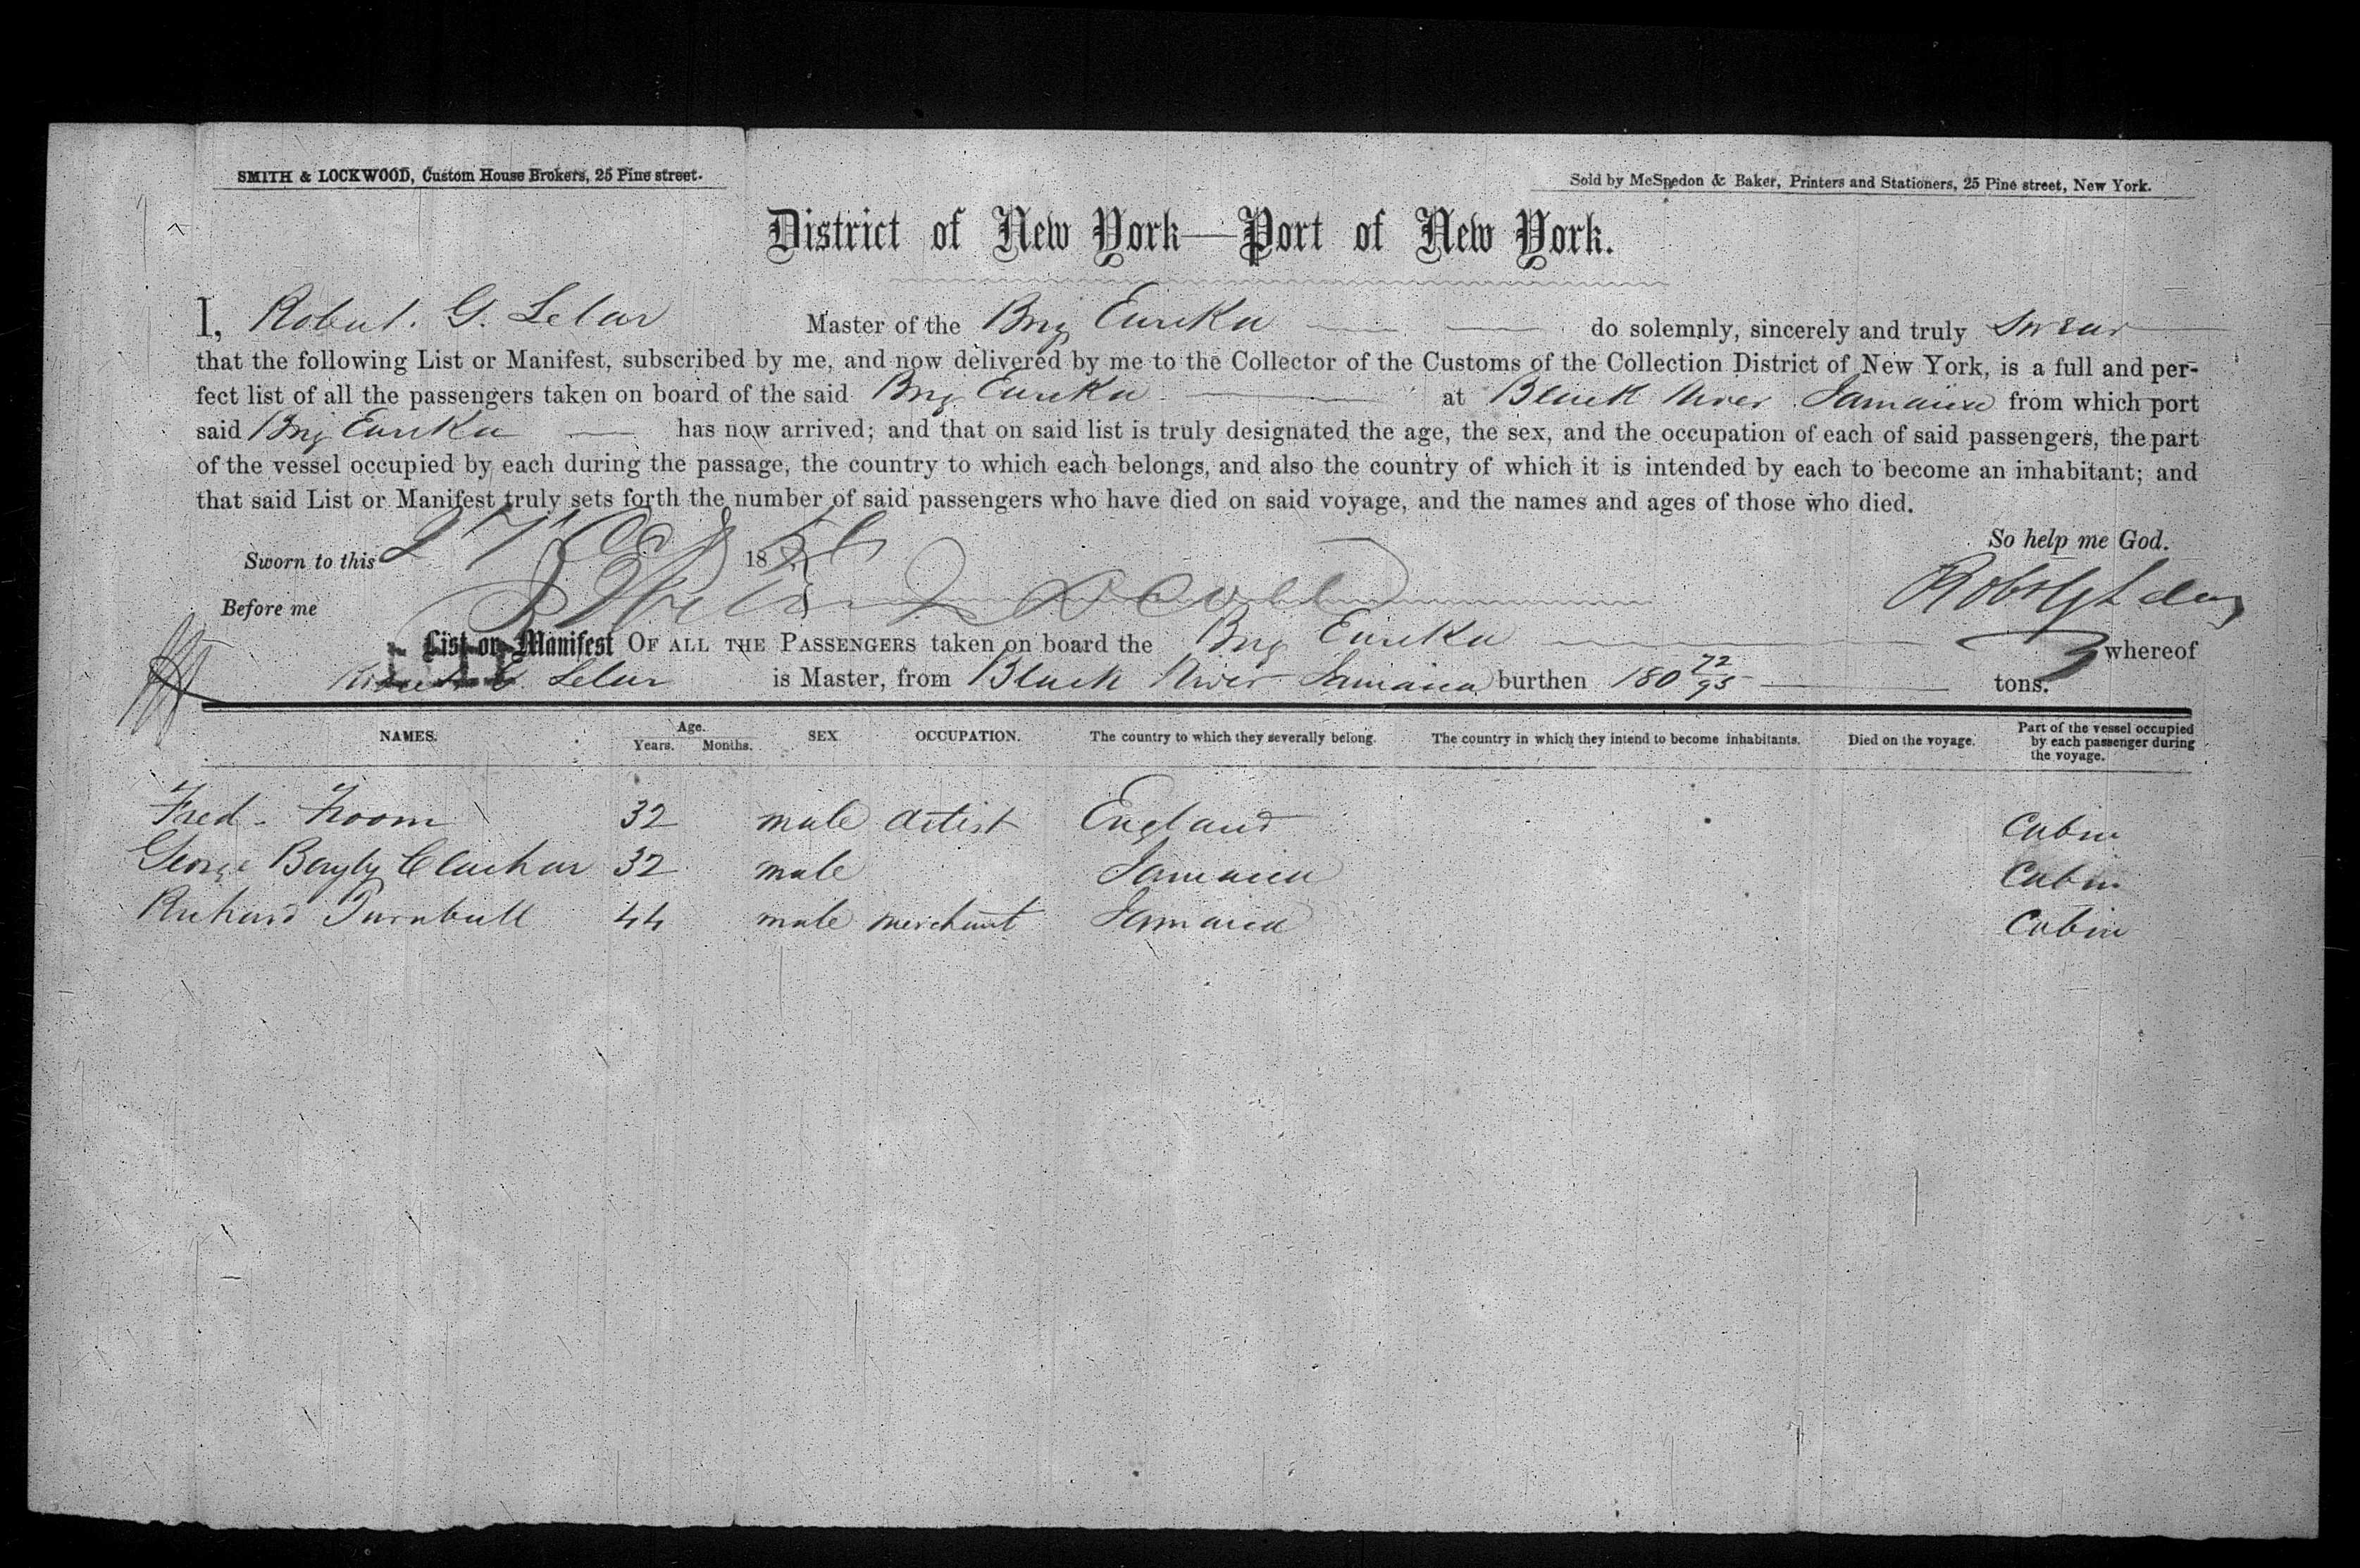 SMITH & LOCKWOOD, Custom House Brokers, 25 Pine street.
Sold by McSpedon & Baker, Printers and Stationers, 25 Pine street, New York.
District of New York—Port of New York.
I, Robert. G. Lelar Master of the Brig Eureka do solemnly, sincerely and truly swear
that the following List or Manifest, subscribed by me, and now delivered by me to the Collector of the Customs of the Collection District of New York, is a full and per-
fect list of all the passengers taken on board of the said Brig Eureka at Black River Jamaica from which port
said Brig Eureka has now arrived; and that on said list is truly designated the age, the sex, and the occupation of each of said passengers, the part
of the vessel occupied by each during the passage, the country to which each belongs, and also the country of which it is intended by each to become an inhabitant; and
that said List or Manifest truly sets forth the number of said passengers who have died on said voyage, and the names and ages of those who died.
So help me God.
Sworn to this 27 Oct 1856
Before me
List or Manifest OF ALL THE PASSENGERS taken on board the Brig Eureka whereof
Robert G. Lelar is Master, from Black River Jamaica burthen 180 72/95 tons.
NAMES. Age. Years. Months. SEX OCCUPATION. The country to which they severally belong. The country in which they intend to become inhabitants. Died on the voyage. Part of the vessel occupied by each passenger during the voyage.
Fred. Froom 32 male artist England Cabin
George Bayly Clachar 32 male Jamaica Cabin
Richard Turnbull 44 male merchant Jamaica Cabin